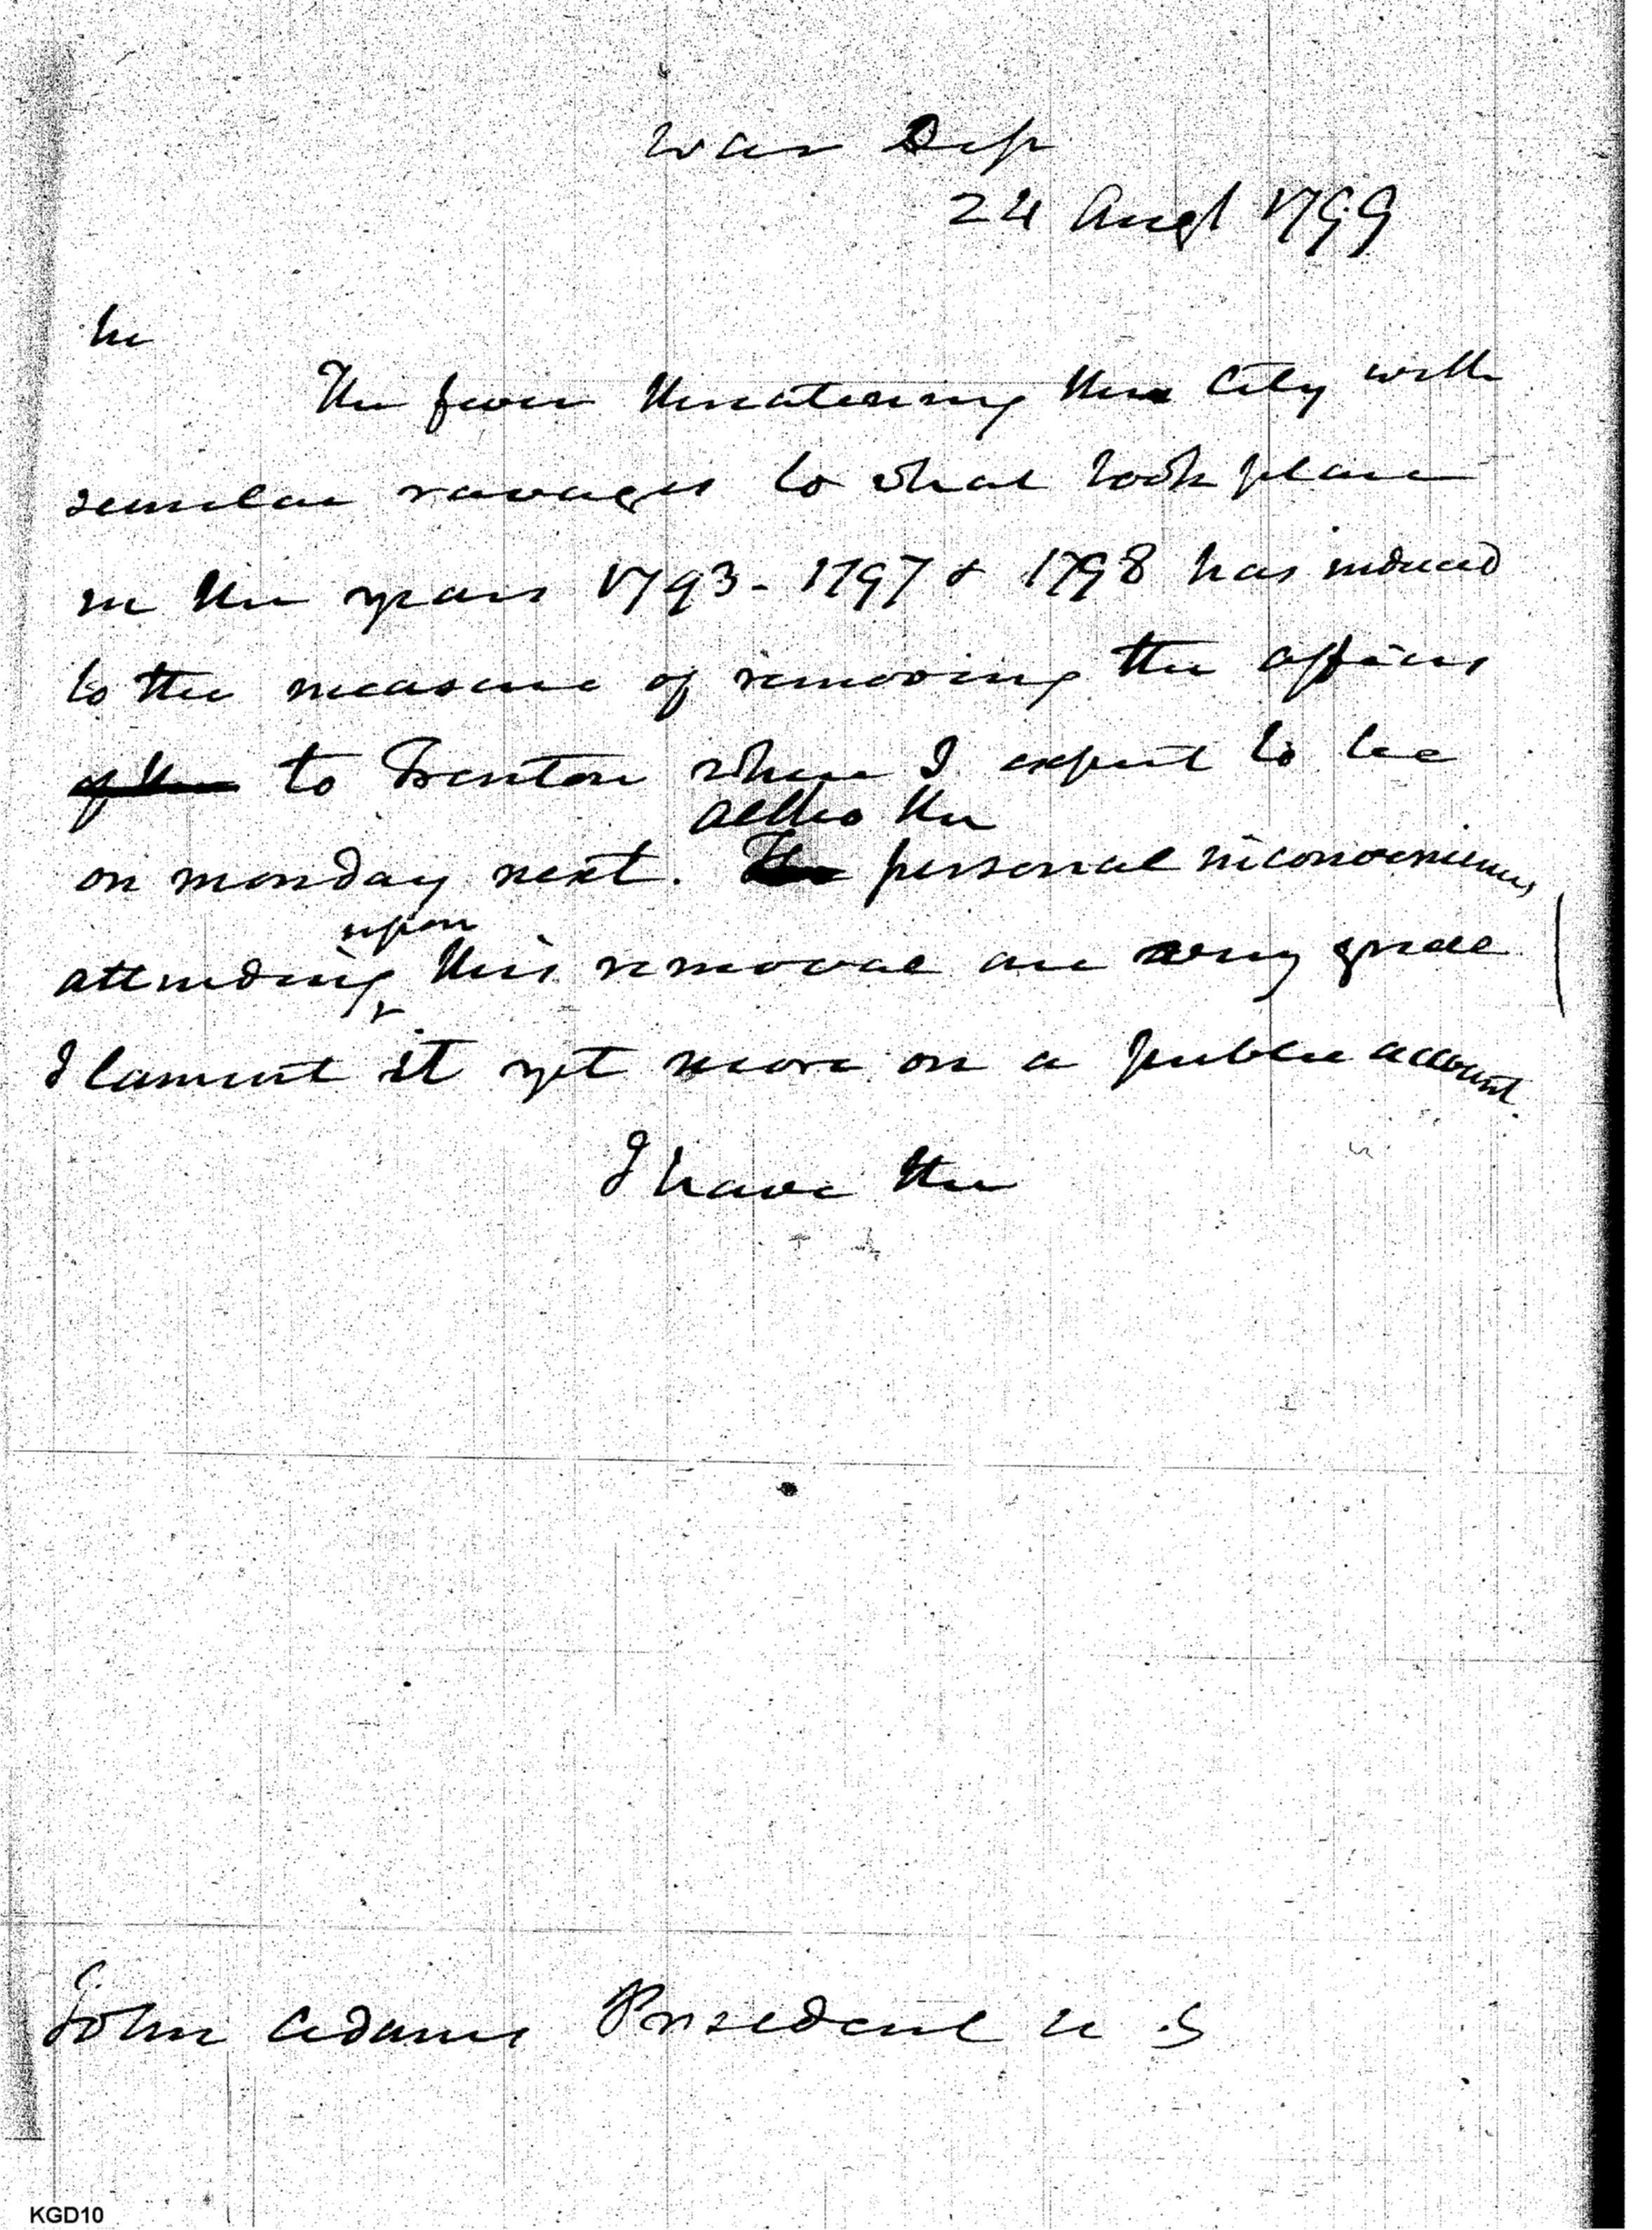 War Dep
24 Augt 1799
Sir
The fever threatening the City with
similar ravages to what took place
in the years 1793 - 1797 & 1798 has induced
to the measure of removing the offices
of the to Trenton where I expect to be
altho the
on monday next. The personal inconveniences
upon
attending this removal are very great
I lament it yet more on a public account.
I have the
John Adams President U.S
KGD10